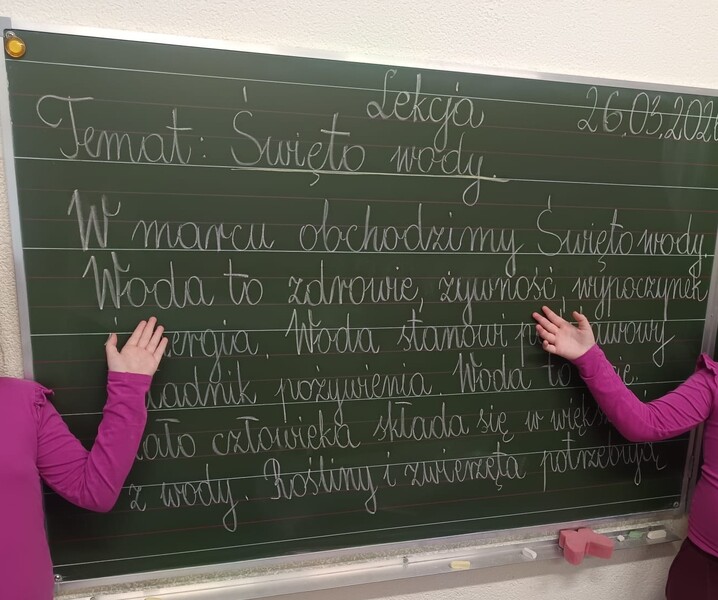 Lekcja 26.03.202
Temat: Święto wody.
W marcu obchodzimy Święto wody.
Woda to zdrowie, żywność, wypoczynek
i energia. Woda stanowi
pożywienia. Woda to
człowieka składa się w
z wody. Rośliny i zwierzęta potrzebują